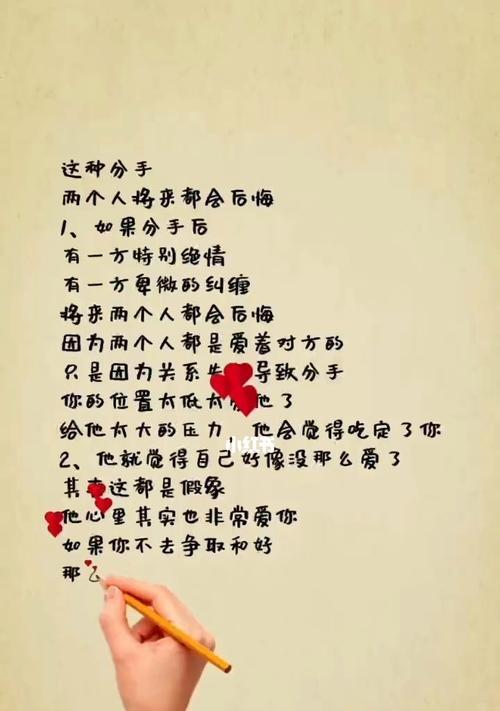 这种分手
两个人将来都会后悔
1、如果分手后
有一方特别绝情
有一方卑微的纠缠
将来两个人都会后悔
因为两个人都是爱着对方的
只是因为关系失 导致分手
你的位置太低太 他了
给他太大的压力 他会觉得吃定了你
小红书
2、他就觉得自己好像没那么爱了
其 这都是假象
他心里其实也非常爱你
如果你不去争取和好
那